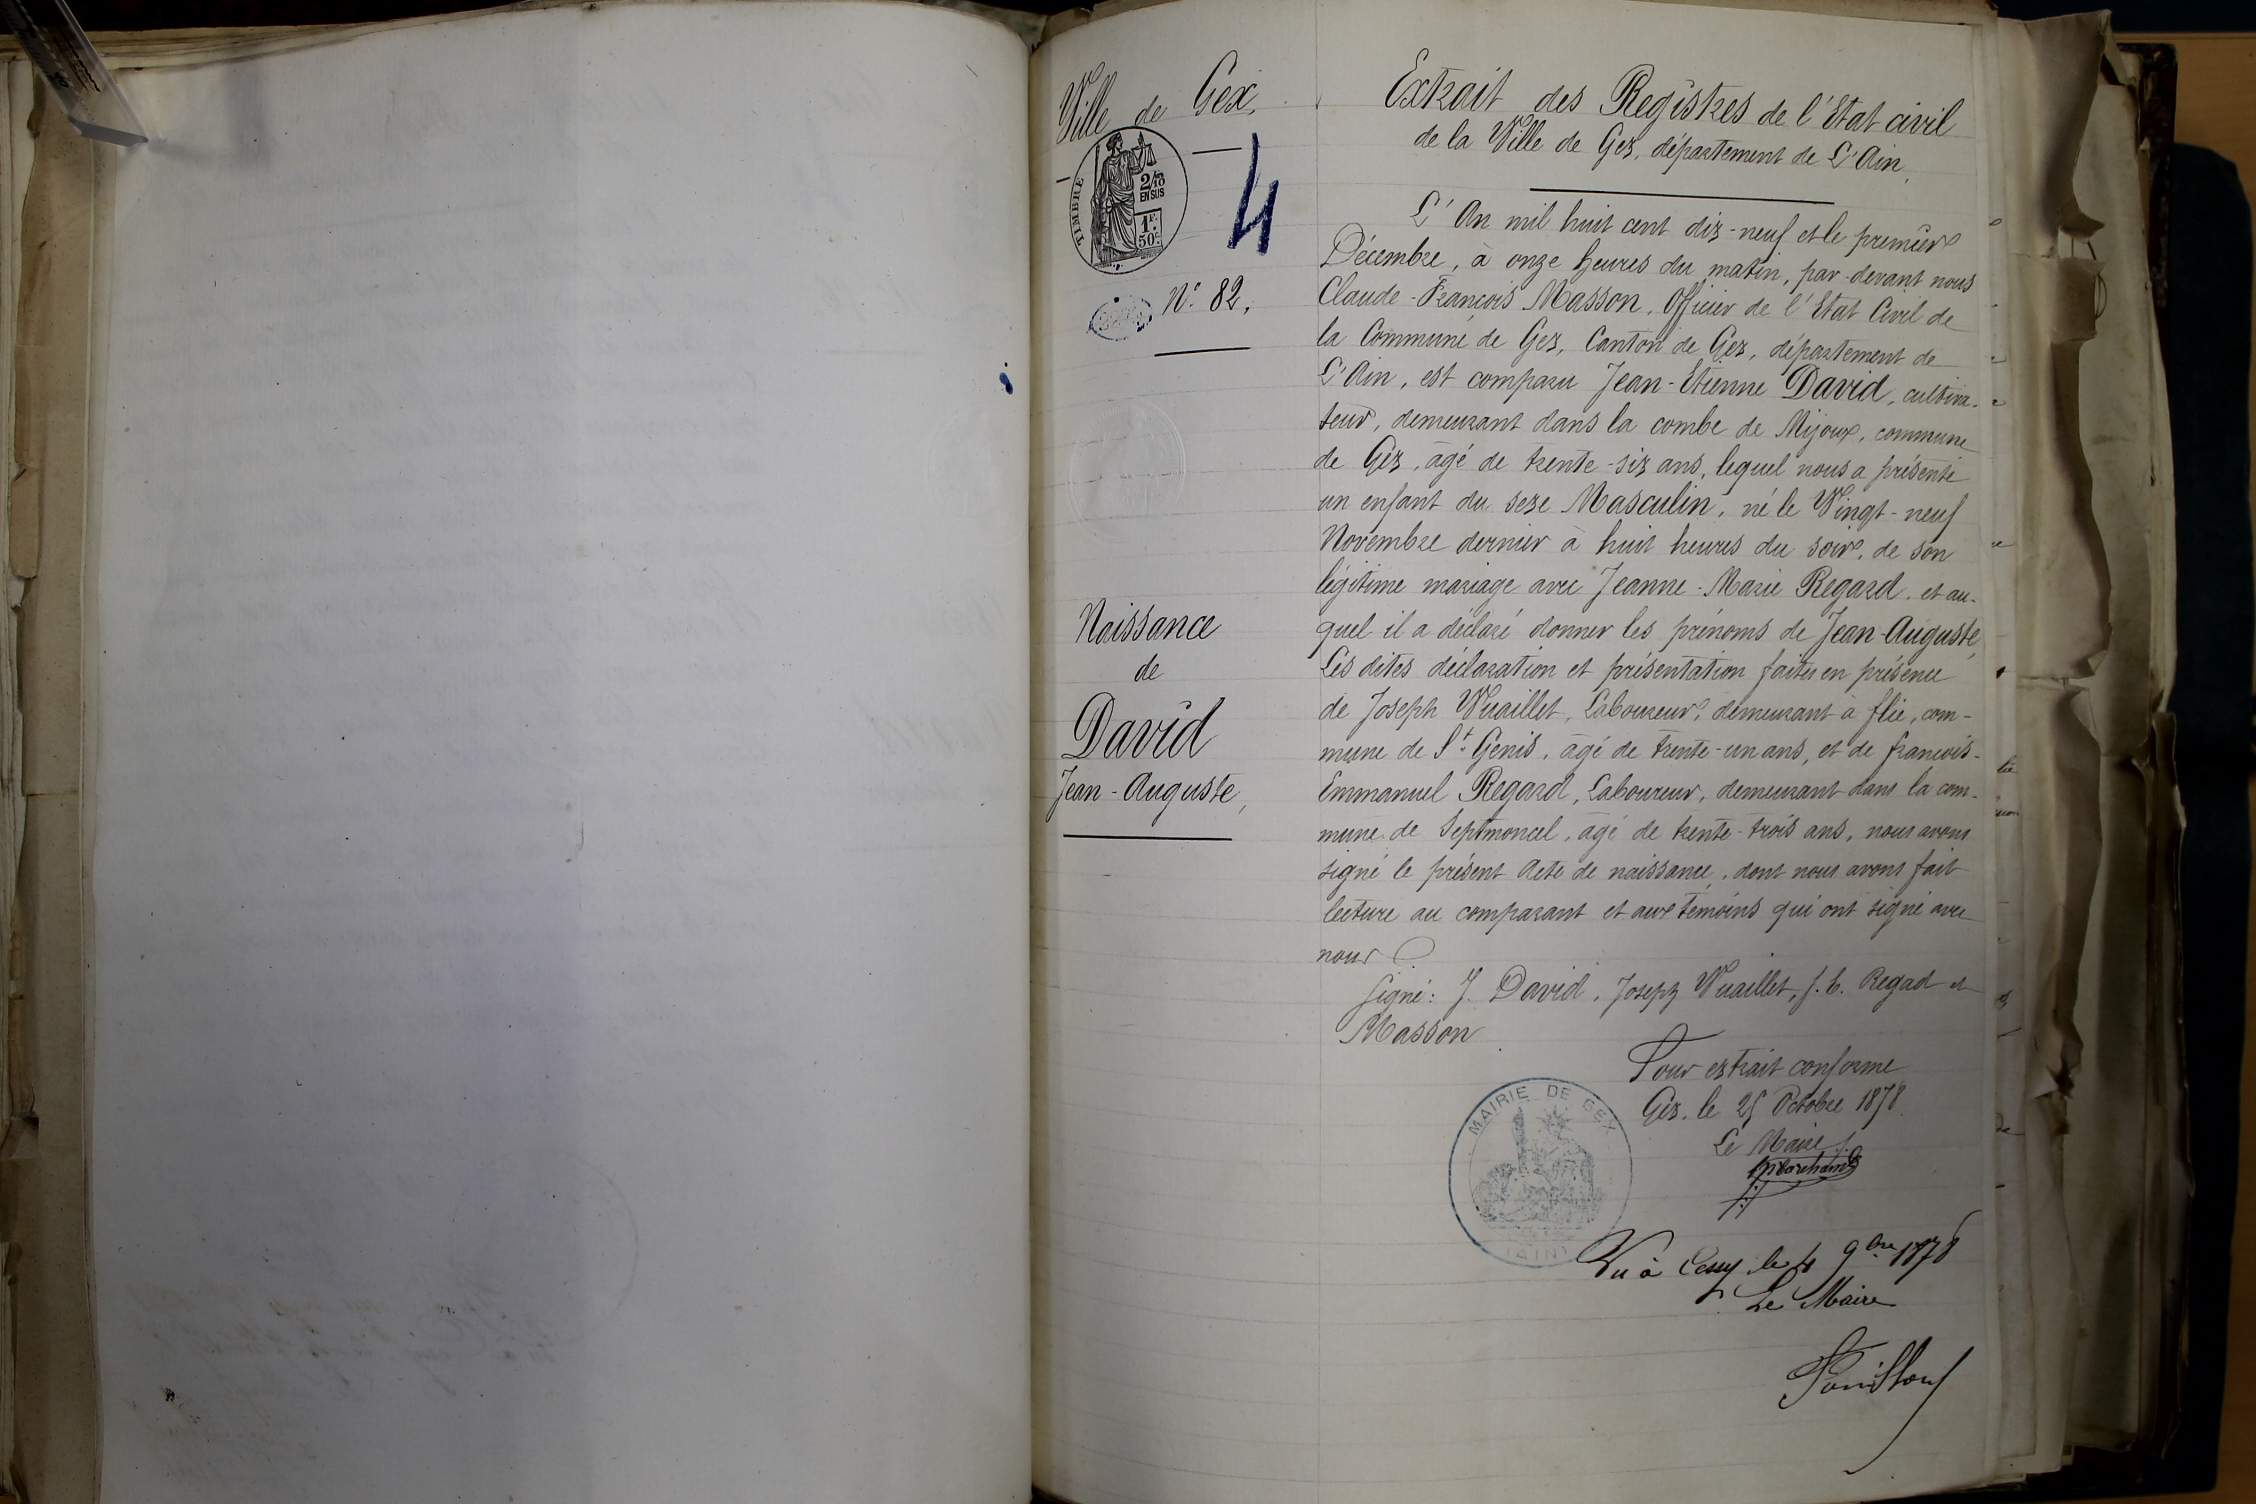 Ville de Gex,
TIMBRE
2/10
EN SUS
1F.
50c.
4
N° 82.
Naissance
de
David
Jean-Auguste,
Extrait des Registres de l'Etat civil
de la Ville de Gex, département de L'Ain,
L'An mil huit cent dix-neuf et le premier
Décembre, à onze heures du matin, par-devant nous
Claude-François Masson, Officier de l'Etat Civil de
la Commune de Gex, Canton de Gex, département de
L'Ain, est comparu Jean-Etienne David, cultiva-
teur, demeurant dans la combe de Mijoux, commune
de Gex, âgé de trente-six ans, lequel nous a présenté
un enfant du sexe Masculin, né le Vingt-neuf
Novembre dernier à huit heures du soir, de son
légitime mariage avec Jeanne-Marie Regard, et au-
quel il a déclaré donner les prénoms de Jean-Auguste,
Les dites déclaration et présentation faites en présence
de Joseph Vuaillet, Laboureur, demeurant à flie, com-
mune de St Genis, âgé de trente-un ans, et de françois-
Emmanuel Regard, Laboureur, demeurant dans la com-
mune de Septmoncel, âgé de trente-trois ans, nous avons
signé le présent Acte de naissance, dont nous avons fait
lecture au comparant et aux témoins qui ont signé avec
nous
Signé: J. David, Joseph Vuaillet, f. E. Regad et
Masson
Pour extrait conforme
Gex, le 25 Octobre 1878.
Le Maire
MAIRIE DE GEX
(AIN)
Vu à Cessy le 4 9bre 1878
Le Maire